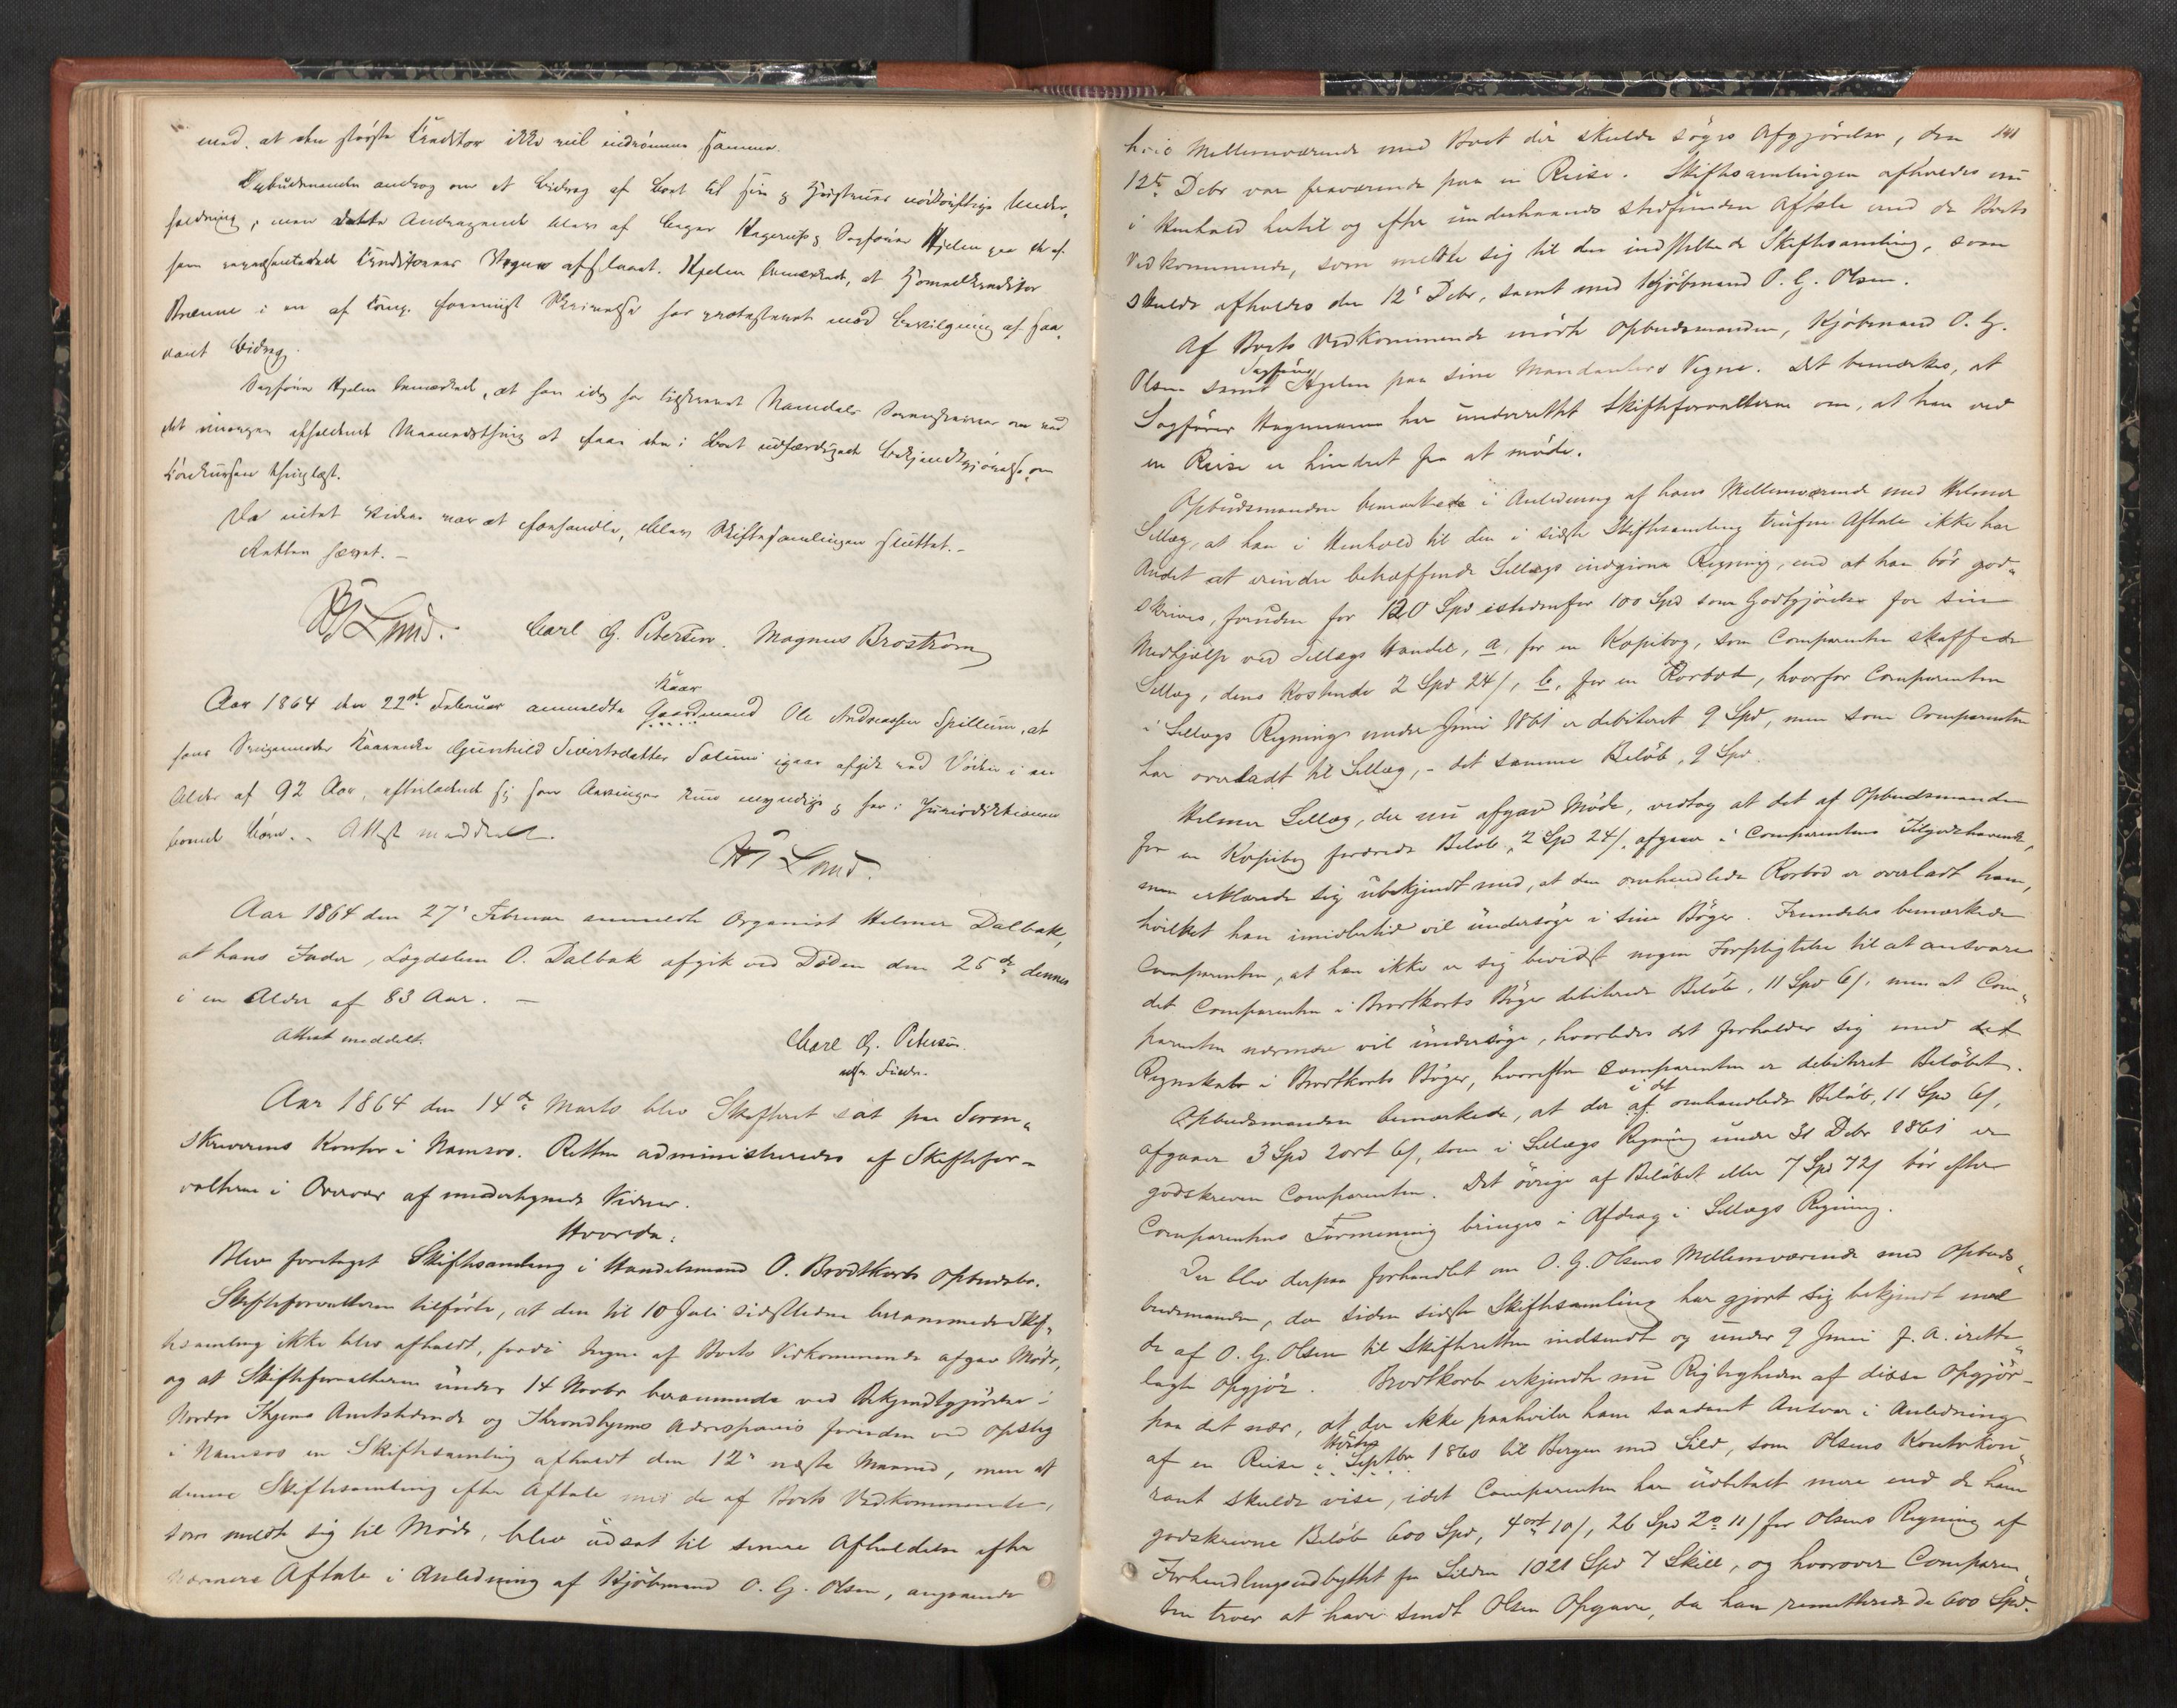 med. at den største Creditor ikke vil indrømme samme.
Opbudsmanden androg om et Bidrag af Boet til sin og Hustrues nødtørftige Under-
holdning; men dette Andragende blev af Sagf. Hagerup og Sagfører Hjelm paa de af
ham repræsenterede Creditorers Vegne afslaaet. Hjelm bemærkede, at Hovedkreditor
i en af Comp. foreviist Skrivelse har protesteret mod Bevilgning af saa-
dant Bidrag.
Sagfører Hjelm bemærkede, at han idag har tilskrevet Namdals Sorenskriver om ved
det imorgen afholdende Maanedsthing at faae den i Boet udfærdigede Bekjendtgjørelse om
Concursen thinglæst.
Da intet videre var at forhandle, blev Skiftesamlingen sluttet.-
Retten hævet. -
Lund. Carl G. Petersen. Magnus Broström
Kaar
Aar 1864 den 22de Februar anmeldte Gaardmand Ole Andreassen Spillum, at
hans Svigermoder Kaarenke Gunhild Sivertsdatter igaar afgik ved Døden i en
Alder af 92 Aar, efterladende sig som Arvinger kun myndige og her i Jurisdiktionen
boende Børn. - Attest meddeelt.
Lund.
Aar 1864 den 27de Februar anmeldte Organist Helmer Dalbak,
at hans Fader, Lægdslem O. Dalbak afgik ved Døden den 25de dennes
i en Alder af 83 Aar. -
Attest meddelt.
Carl G. Petersen.
Aar 1864 den 14de Marts blev Skifteret sat paa Soren-
skriverens Kontor i Namsos. Retten administreredes af Skiftefor-
valteren i Overvær af undertegnede Vidner.
Hvorda:
Blev foretaget Skiftesamling i Handelsmand O. Brodtkorbs Opbudsbo.
Skifteforvalteren tilførte, at den til 10 Juli sidstleden berammede Skif-
tesamling ikke blev afholdt, fordi Ingen af Boets Vedkommende afgav Møde,
og at Skifteforvalteren under 14 Novbr berammede ved Bekjendtgjørelse i
Nordre Thjems Amtstidende og Throndhjems Adresseavis foruden ved Opslag
i Namsos en Skiftesamling afholdt den 12te næste Maaned, men at
denne Skiftesamling efter Aftale med de af Boets Vedkommende,
som meldte sig til Møde, blev udsat til senere Afholdelse efter
nærmere Aftale i Anledning af Kjøbmand O. G. Olsen, angaaende
141
hvis Mellemværende med Boet der skulde søges Afgjørelse, den
12te Debr var fraværende paa en Reise. Skiftesamlingen afholdes nu
i Henhold hertil og efter underhaands stedfunden Aftale med de Boets
Vedkommende, som meldte sig til den indstillede Skiftesamling, som
skulde afholdes den 12te Debr, samt med Kjøbmand O. G. Olsen.
Af Boets Vedkommende mødte Opbudsmanden, Kjøbmand O. G.
Sagfører
Olsen samt Hjelm paa sine Mandanters Vegne. Det bemærkes, at
Sagfører Hagemann har underrettet Skifteforvalteren om, at han ved
en Reise er hindret fra at møde.
Opbudsmanden bemærkede i Anledning af hans Mellemværende med Helmer
Sellæg, at han i Henhold til den i sidste Skiftesamling trufne Aftale ikke har
Andet at erindre betræffende Sellægs indgivne Regning, end at han bør god-
skrives, foruden for 120 Spd istedenfor 100 Spd som Godtgjørelse for sin
Medhjælp ved Sellægs Handel, a, for en Kopibog, som Comparenten skaffede
Sellæg, dens Kostende 2 Spd 24 s, b, for en Rorbod, hvorfor Comparenten
i Sellægs Regning under Juni 1861 er debiteret 9 Spd, men som Comparenten
har overladt til Sellæg, - det samme Beløb, 9 Spd.
Helmer Sellæg, der nu afgav Møde, vedtog at det af Opbudsmanden
for en Kopibog fordrede Beløb, 2 Spd 24 s. afgaaer i Comparentens Tilgodehavende,
men erklærede sig ubekjendt med, at den omhandlede Rorbod er overladt ham,
hvilket han imidlertid vil undersøge i sine Bøger. Fremdeles bemærkede
Comparenten, at han ikke er sig bevidst nogen Forpligtelse til at ansvare
det Comparenten i Brodtkorbs Bøger debiterede Beløb, 11 Spd 6 s, men at Com-
parenten nærmere vil undersøge, hvorledes det forholder sig med det
Regnskab i Brodtkorbs Bøger, hvorefter Comparenten er debiteret Beløbet.
i det
Opbudsmanden bemærkede, at der af omhandlede Beløb, 11 Spd 6 s,
afgaaer 3 Spd 2 ort 6 s, som i Sellægs Regning under 31 Debr 1861 er
godskreven Comparenten. Det øvrige af Beløbet eller 7 Spd 72 s bør efter
Comparentens Formening bringes i Afdrag i Sellægs Regning.
Der blev derpaa forhandlet om O. G. Olsens Mellemværende med Opbuds-
budsmanden, der siden sidste Skiftesamling har gjort sig bekjendt med
de af O. G. Olsen til Skifteretten indsendte og under 9 Juni f. A. irette-
lagte Opgjør. Brodtkorb erkjendte nu Rigtigheden af disse Opgjør-
paa det nær, at der ikke paahviler ham saadant Ansvar i Anledning
Høsten
af en Reise i Septbr 1860 til Bergen med Sild, som Olsens Kontokou-
rant skulde vise, idet Comparenten har udbetalt mere end de ham
godskrevne Beløb 600 Spd, 4 ort 10 s, 26 Spd 2 o 11 s for Olsens Regning af
Forhandlingsudbyttet for Silden 1021 Spd 7 Skill, og hvorover Comparen-
ten troer at have sendt Olsen Opgave, da han remitterede de 600 Spd.